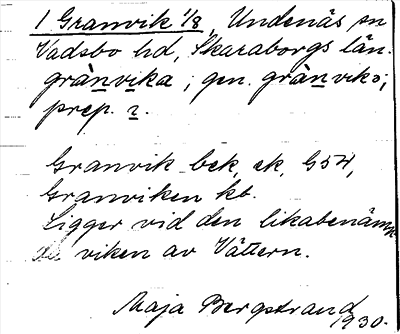 1 Granvik 1/8, Undenäs sn
Vadsbo hd, Skaraborgs län.
gràṉvi̱ka; gen. gràṉvikə;
prep. i̱.
Granvik bek, ek, G54,
Granviken kb.
Ligger vid den likabenämn
da viken av Vättern.
Maja Bergstrand
1930.